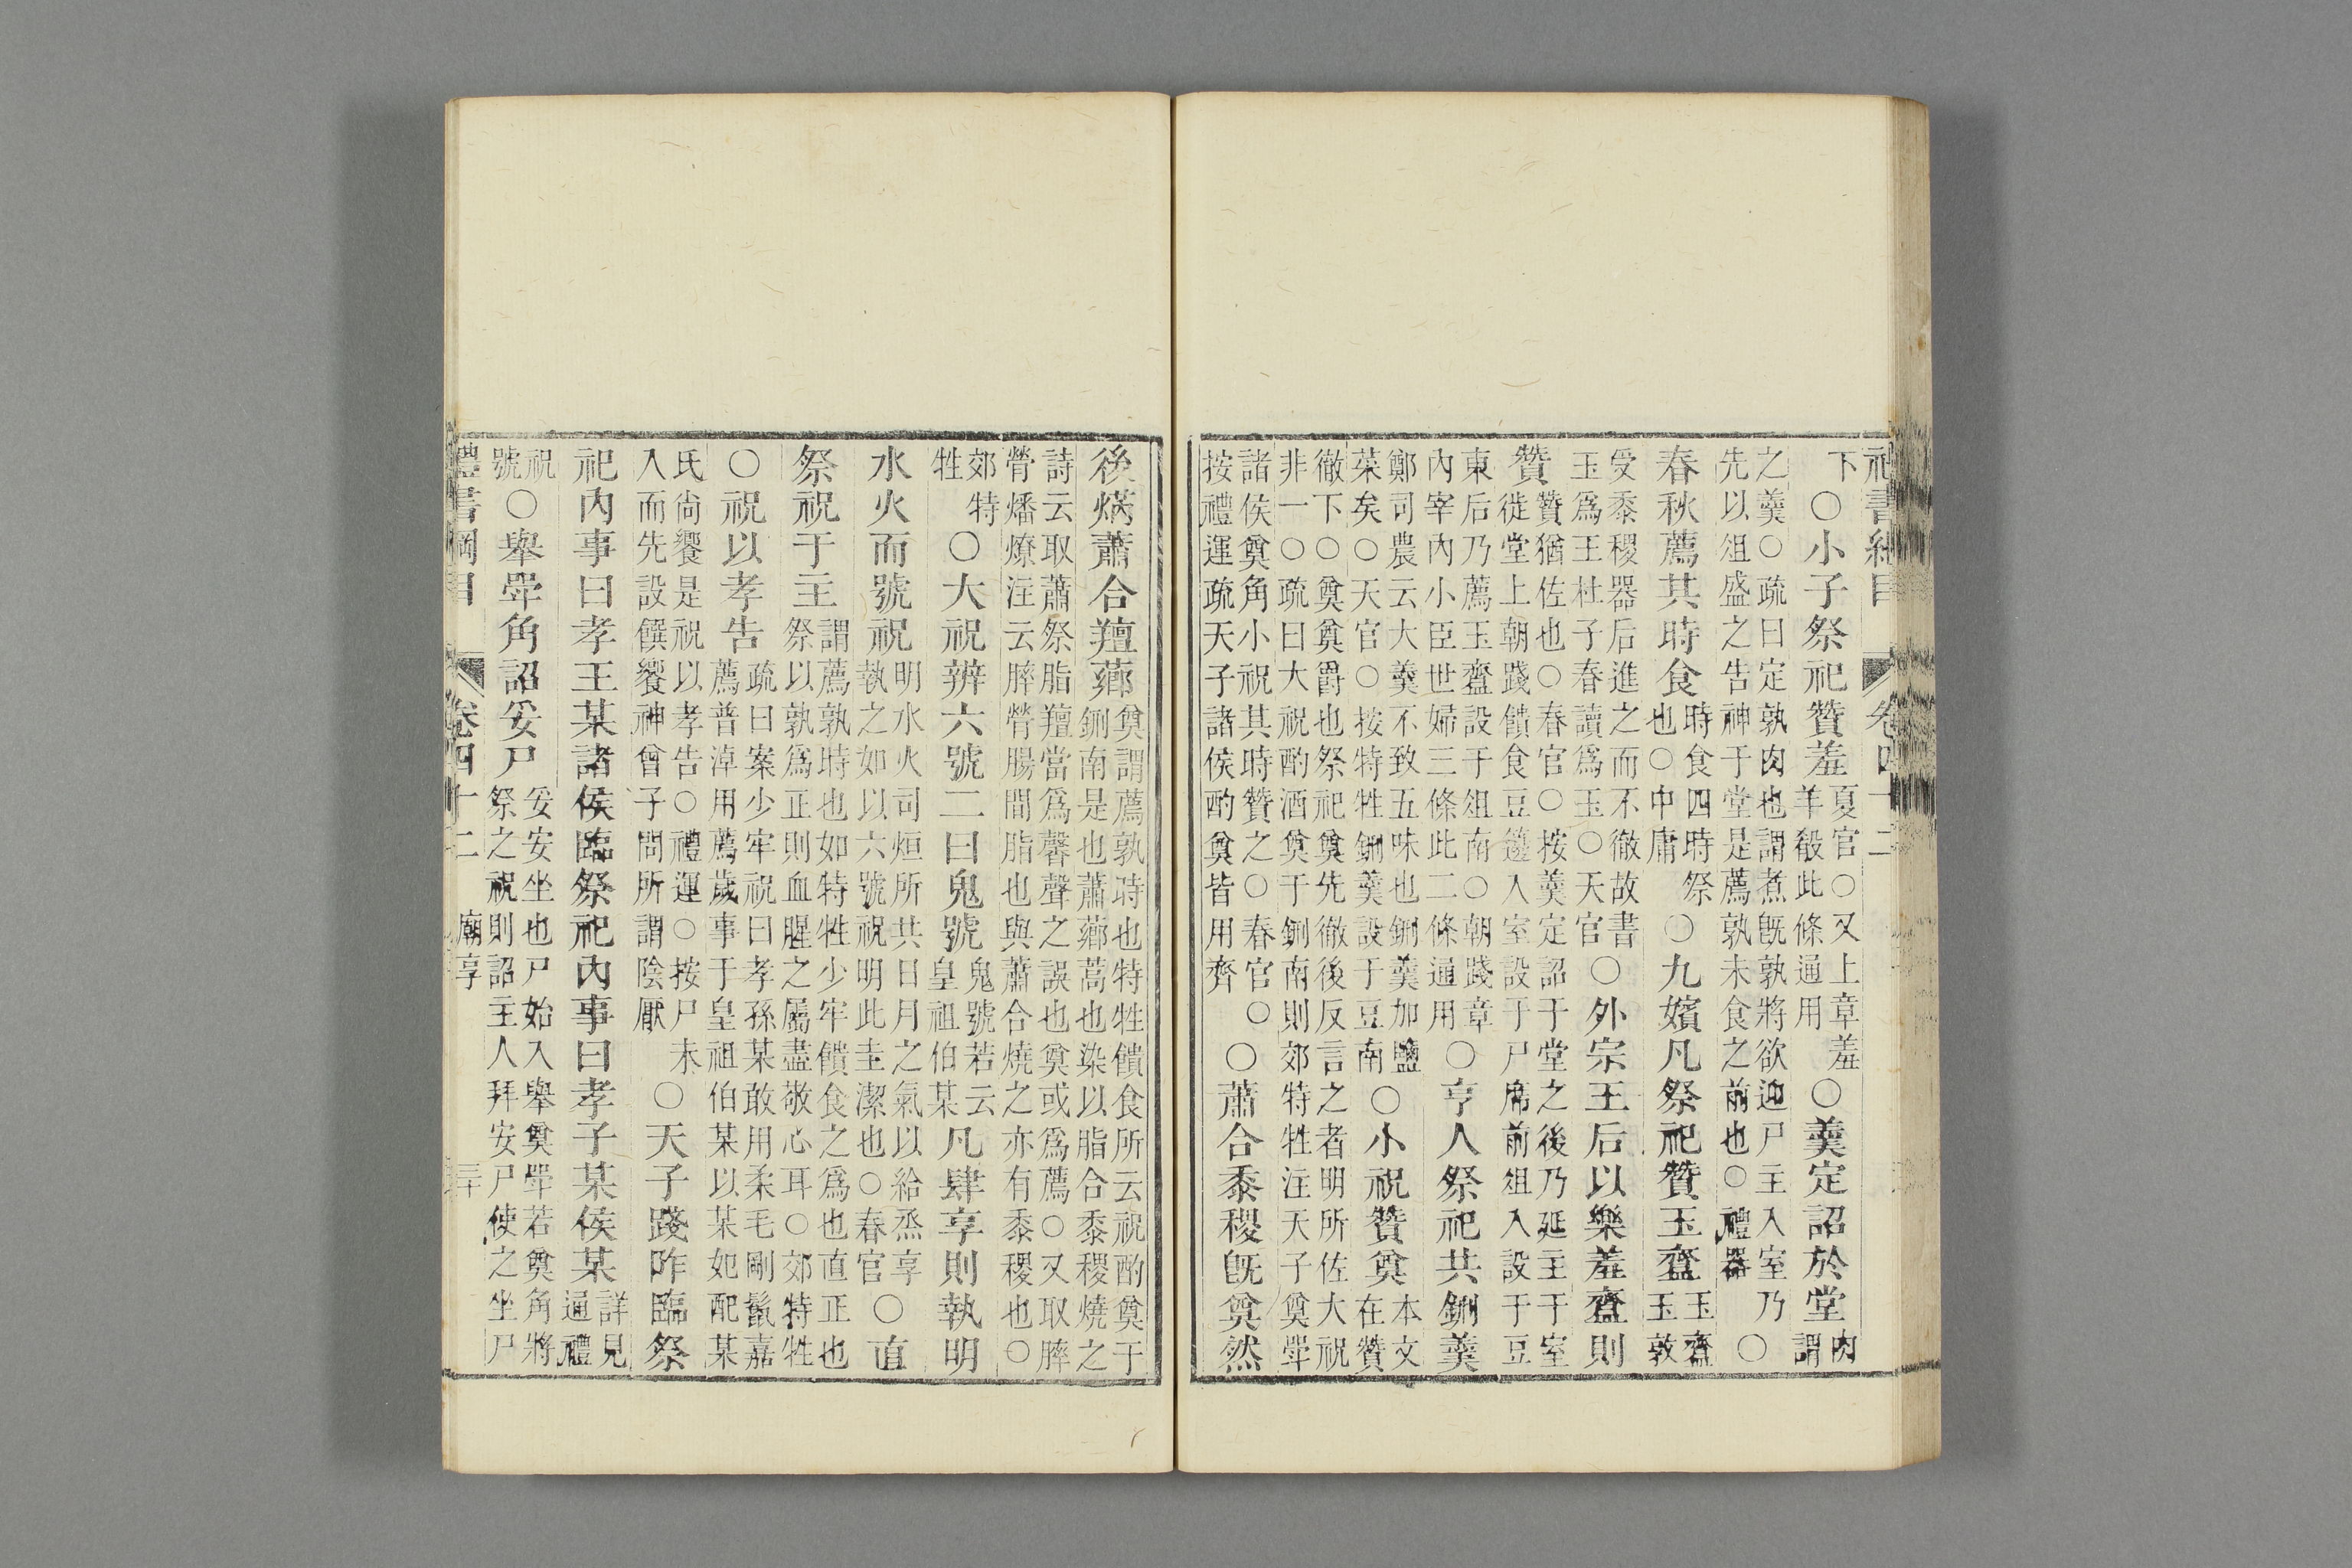 禮書綱目 卷四十二
下○小子祭祀贊羞夏官○又上章羞羊殽此條通用○羹定詔於堂肉謂
之羹○疏曰定孰肉也謂煮旣孰將欲迎尸主入室乃先以俎盛之告神于堂是薦孰未食之前也○禮器○
春秋薦其時食時食四時祭也○中庸○九嬪凡祭祀贊玉齍玉齍玉敦
受黍稷器后進之而不徹故書玉爲王杜子春讀爲玉○天官○外宗王后以樂羞齍則
贊贊猶佐也○春官○按羹定詔于堂之後乃延主于室徙堂上朝踐饋食豆籩入室設于尸席前俎入設于豆
東后乃薦玉齍設于俎南○朝踐章內宰內小臣世婦三條此二條通用○亨人祭祀共鉶羹
鄭司農云大羹不致五味也鉶羹加鹽菜矣○天官○按特牲鉶羹設于豆南○小祝贊奠本文在贊
徹下○奠奠爵也祭祀奠先徹後反言之者明所佐大祝非一○疏曰大祝酌酒奠于鉶南則郊特牲注天子奠斝
諸侯奠角小祝其時贊之○春官○按禮運疏天子諸侯酌奠皆用齊○蕭合黍稷旣奠然
後焫蕭合羶薌奠謂薦孰時也特牲饋食所云祝酌奠于鉶南是也蕭薌蒿也染以脂合黍稷燒之
詩云取蕭祭脂羶當爲馨聲之誤也奠或爲薦○又取膟膋燔燎注云膟膋腸間脂也與蕭合燒之亦有黍稷也○
郊特牲○大祝辨六號二曰鬼號鬼號若云皇祖伯某凡肆享則執明
水火而號祝明水火司烜所共日月之氣以給烝享執之如以六號祝明此圭潔也○春官○直
祭祝于主謂薦孰時也如特牲少牢饋食之爲也直正也祭以孰爲正則血腥之屬盡敬心耳○郊特牲
○祝以孝告疏曰案少牢祝曰孝孫某敢用柔毛剛鬣嘉薦普淖用薦歲事于皇祖伯某以某妃配某
氏尙饗是祝以孝告○禮運○按尸未入而先設饌饗神曾子問所謂陰厭○天子踐阼臨祭
祀內事曰孝王某諸侯臨祭祀內事曰孝子某侯某詳見通禮
祝號○舉斝角詔妥尸妥安坐也尸始入舉奠斝若奠角將祭之祝則詔主人拜安尸使之坐尸
禮書綱目 卷四十二 廟享